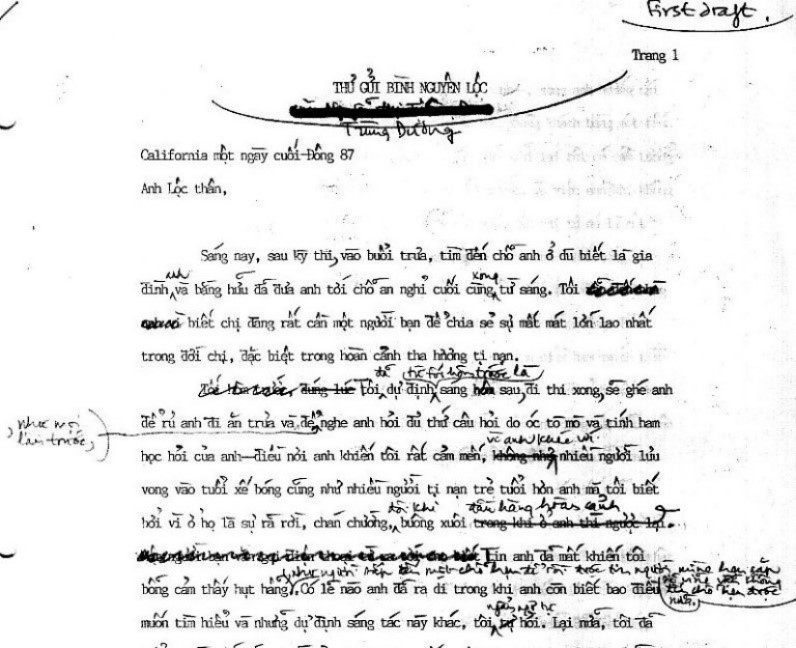 First draft.
Trang 1
THƯ GỬI BÌNH NGUYÊN LỘC
Trùng Dương
California một ngày cuối Đông 87
Anh Lộc thân,
Sáng nay, sau kỳ thi, vào buổi trưa, tìm đến chỗ anh ở dù biết là gia
đình anh và bằng hữu đã đưa anh tới chỗ an nghỉ cuối cùng xong từ sáng. Tôi
biết chị đang rất cần một người bạn để chia sẻ sự mất mát lớn lao nhất
trong đời chị, đặc biệt trong hoàn cảnh tha hương tị nạn.
đã từ tối hôm trước là
Tôi hôm trước, đúng lúc tôi dự định sáng hôm sau, đi thi xong, sẽ ghé anh
để rủ anh đi ăn trưa và để nghe anh hỏi đủ thứ câu hỏi do óc tò mò và tính ham
như mọi
lần trước,
học hỏi của anh—điều nơi anh khiến tôi rất cảm mến, không như nhiều người lưu
và anh khác với
vong vào tuổi xế bóng cũng như nhiều người tị nạn trẻ tuổi hơn anh mà tôi biết
bởi vì ở họ là sự rã rời, chán chường, buông xuôi trong khi ở anh thì ngược lại.
đôi khi đầu hàng hoàn cảnh
Tin anh đã mất khiến tôi
bỗng cảm thấy hụt hẫng. Có lẽ nào anh đã ra đi trong khi anh còn biết bao điều
muốn tìm hiểu và những dự định sáng tác này khác, tôi ngậm ngùi tự hỏi. Lại nữa, tôi đã